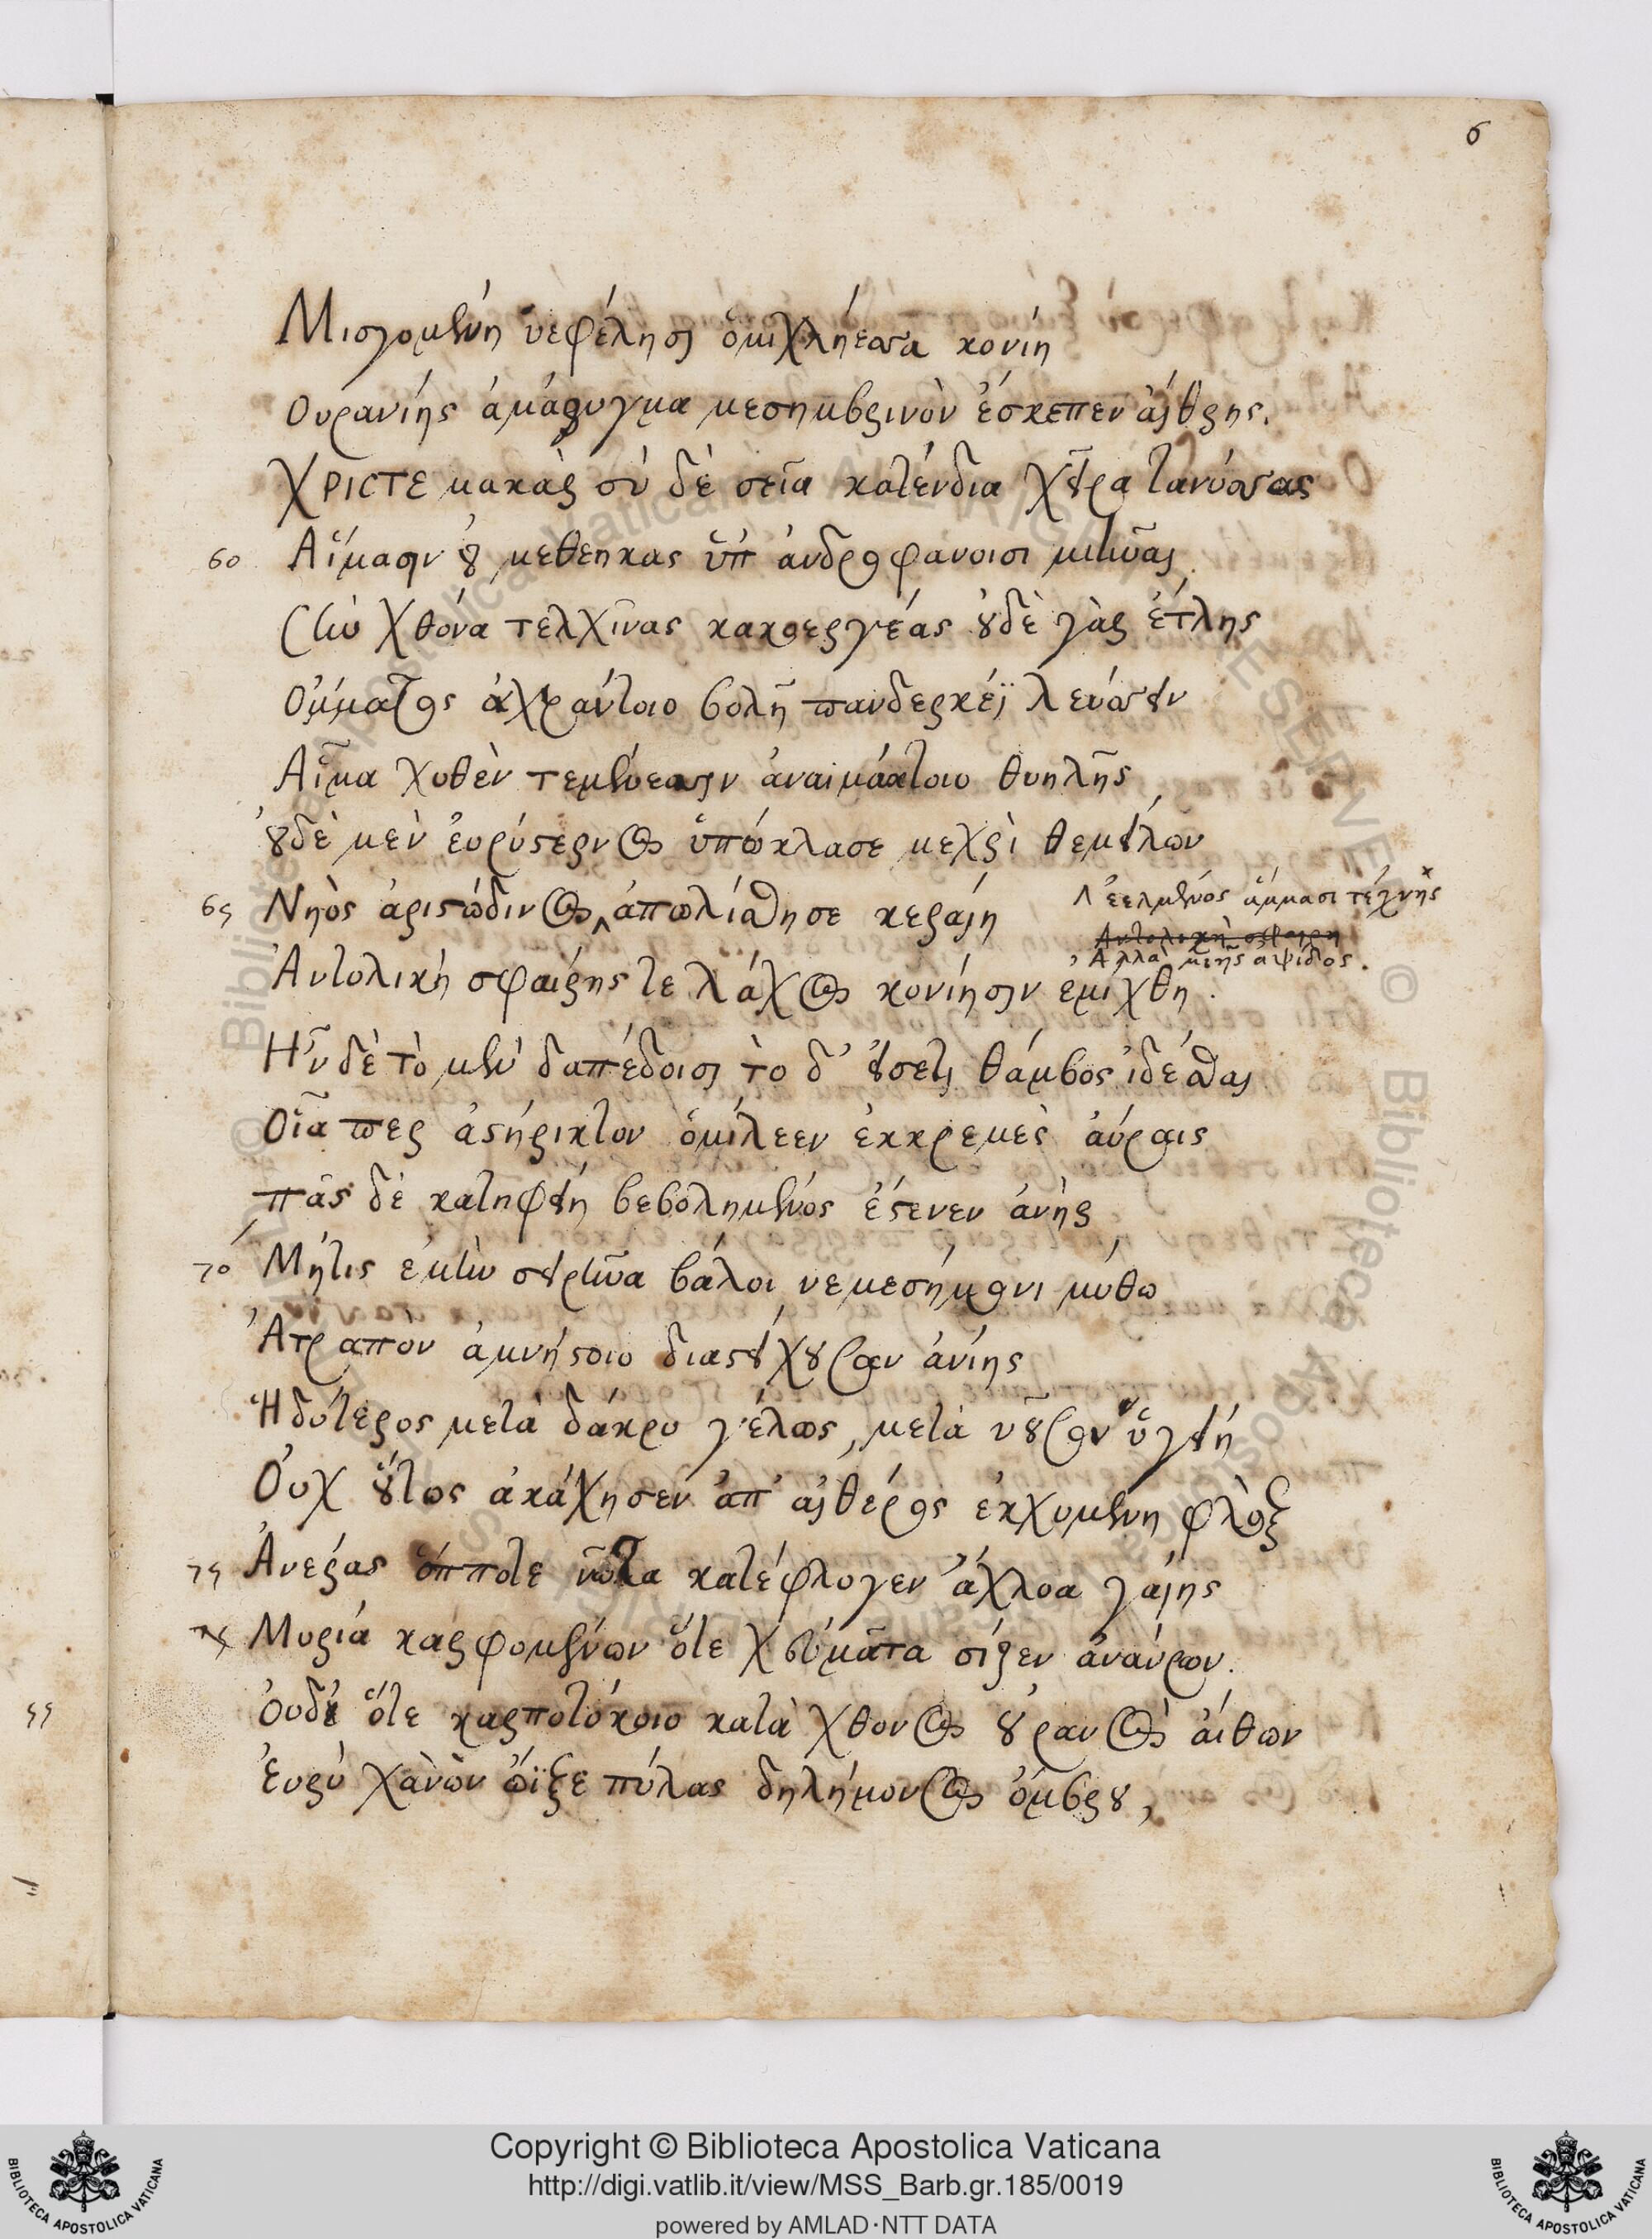 6
Μισγομένη νεφέλησι ὀμιχλήεσσα κονίη
Ουρανίης ἀμάρυγμα μεσημβρινὸν ἔσκεπεν αἴθρης.
ΧΡΙCΤΕ μακὰρ σὺ δὲ σεῖα κατένδια χεῖρα τανύσσας
60 Αἵμασιν οὐ μεθεηκας ὑπ' ἀνδροφάνοισι μιῆναι
Σὴν χθόνα τελχῖνας κακοεργέας οὐδὲ γὰρ ἔτλης
Ὄμματος ἀχράντοιο βολῇ πανδερκέϊ λεύσσειν
Αἷμα χυθὲν τεμένεσσιν ἀναιμάκτοιο θυηλῆς
οὐδὲ μὲν ἐυρύστερνος ὑπώκλασε μεχρὶ θεμείλων
65 Νηὸς ἀριστώδινος ‸ ἀπωλίσθησε κεραίη
‸ ἐελμένος ἅμμασι τέχνης
Αντολικὴ σφαιρη
Ἀλλὰ μιῆς ἀψίδος.
Ἀντολικὴ σφαίρης τε λάχος κονίησιν εμιχθη.
Ἦν δὲ τὸ μὲν δαπέδοισι τὸ δ' εἰσετι θάμβος ἰδέσθαι
Οἷα περ ἀστήρικτον ὁμίλεεν ἐκκρεμὲς αὔραις
πᾶς δὲ κατηφείη βεβολημένος ἔστενεν ἀνὴρ
70 Μήτις ἐμὴν σειρῆνα βάλοι νεμεσήμονι μύθῳ
Ἀτραπὸν ἀμνήστοιο διαστείχουσαν ἀνίης
Ἡδύτερος μετὰ δάκρυ γέλως, μετὰ νοῦσον ὑγείη
Οὐχ οὕτως ἀκάχησεν ἀπ' αἰθέρος ἐκχυμένη φλὸξ
75 Ἀνερας ὁππότε νῶτα κατέφλογεν ἄχλοα γαίης
Μυρία καρφομένων ὅτε χεύματα σίζεν ἀναύρων.
Οὐδ' ὅτε καρποτόκοιο κατὰ χθονὸς οὐρανὸς αἴθων
Ἐυρὺ χανὼν ὤϊξε πύλας δηλήμονος ὄμβρου,
55
Copyright © Biblioteca Apostolica Vaticana
http://digi.vatlib.it/view/MSS_Barb.gr.185/0019
powered by AMLAD·NTT DATA
BIBLIOTECA APOSTOLICA VATICANA
BIBLIOTECA APOSTOLICA VATICANA